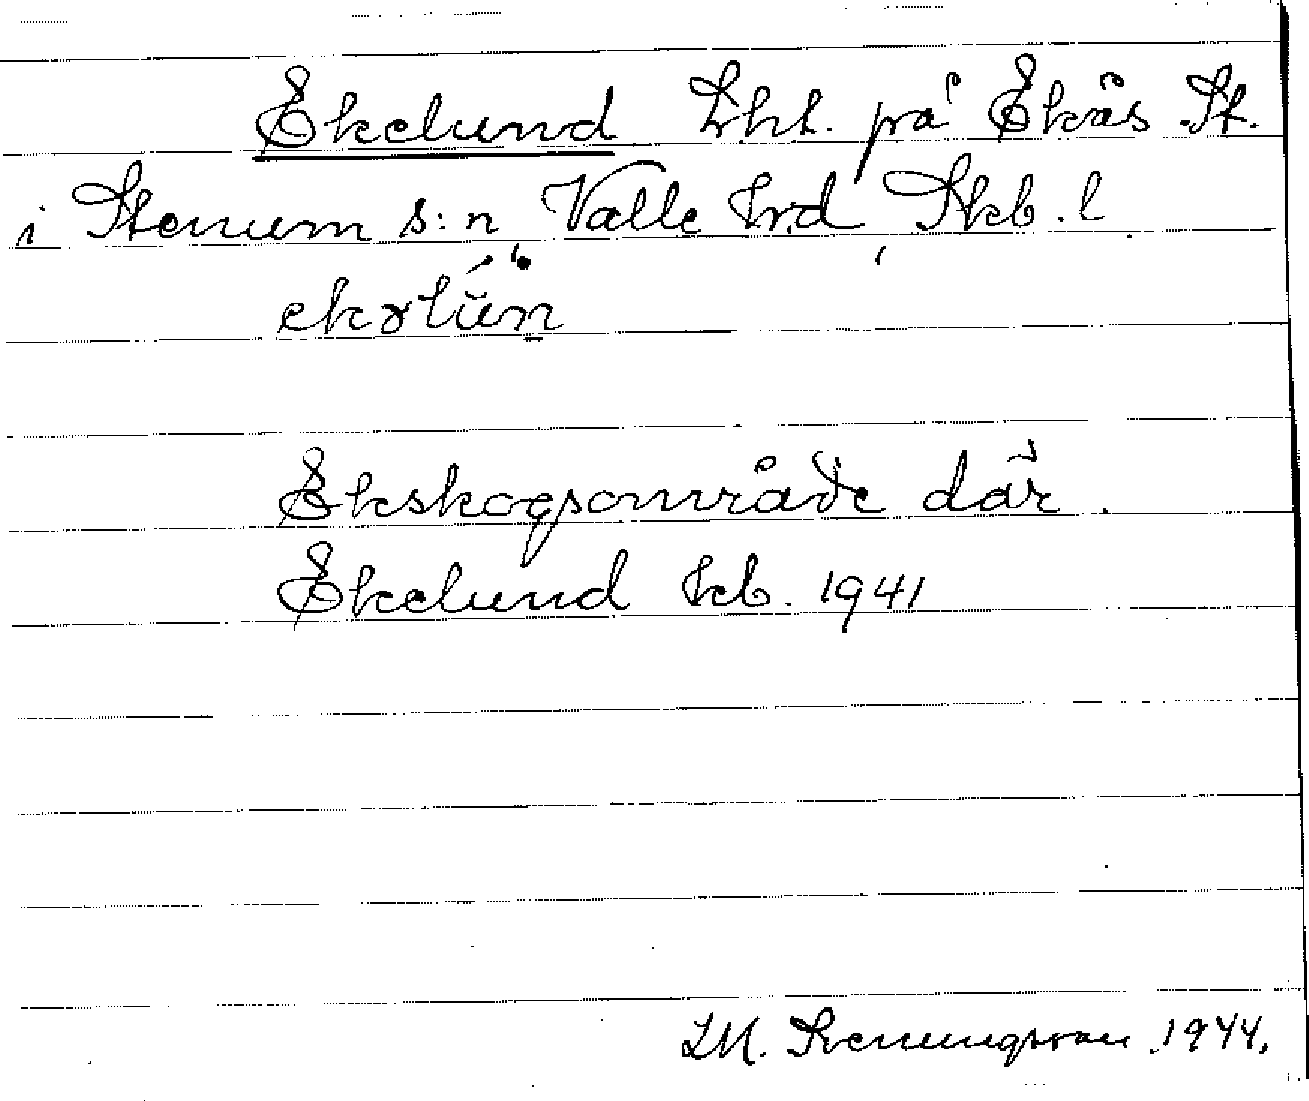 Ekelund Lht. på Ekås St.
i Stenum s:n, Valle hrd, Skb. l.
ekɤlùn
Ekskogsområde där.
Ekelund kb. 1941
LM. Svenungsson 1944.